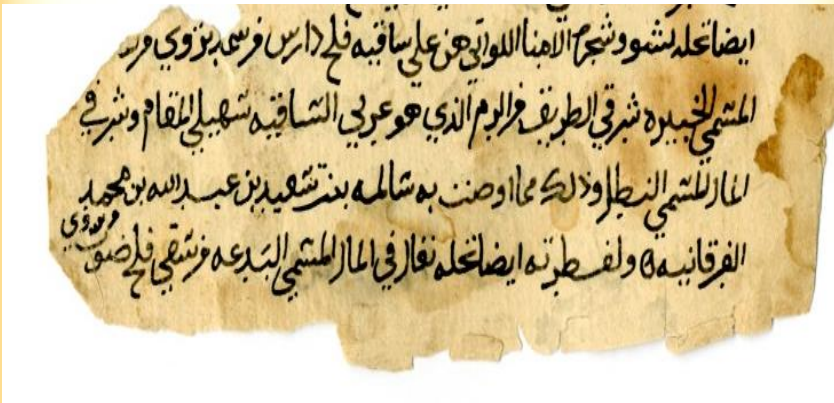 ايضا نخله بشمو وشجره الامنا اللواتي هن علي ساقيه فلج دارس من سقي نزوي من
المسمي الخبيره شرقي الطريق من الرم الذي هو غربي الساقيه سهيلي المقام وشرقي
المال المسمي النطيل وذلك مما اوصت به سالمه بنت سعيد بن عبد الله بن محمد
الفرقانيه ولفطرته ايضا نخله نغال في المال المسمي البدعه من سقي فلج ضو
من نزوي